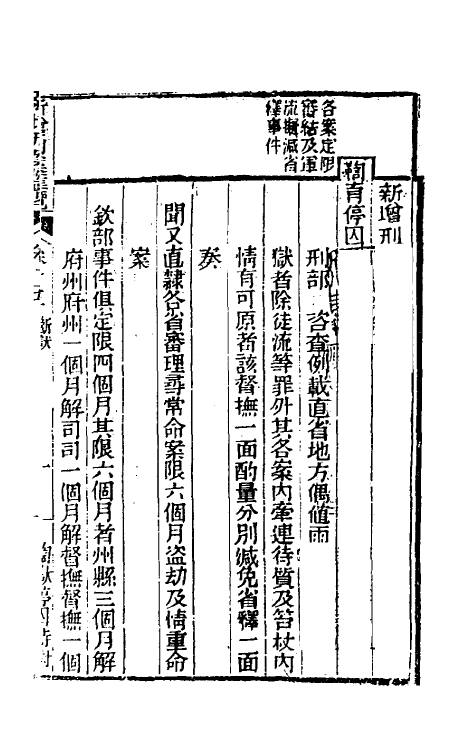 新增刑
鞫獄停囚
刑部 咨查例載直省地方偶值雨
獄者除徒流等罪外其各案內牽連待質及笞杖內
情有可原者該督撫一面酌量分別減免省釋一面
奏
聞又直隸各省審理尋常命案限六個月盜劫及情重命
案
欽部事件俱定限四個月其限六個月者州縣三個月解
府州府州一個月解司司一個月解督撫督撫一個
各案定限
審結及軍
流擬減省
釋事件